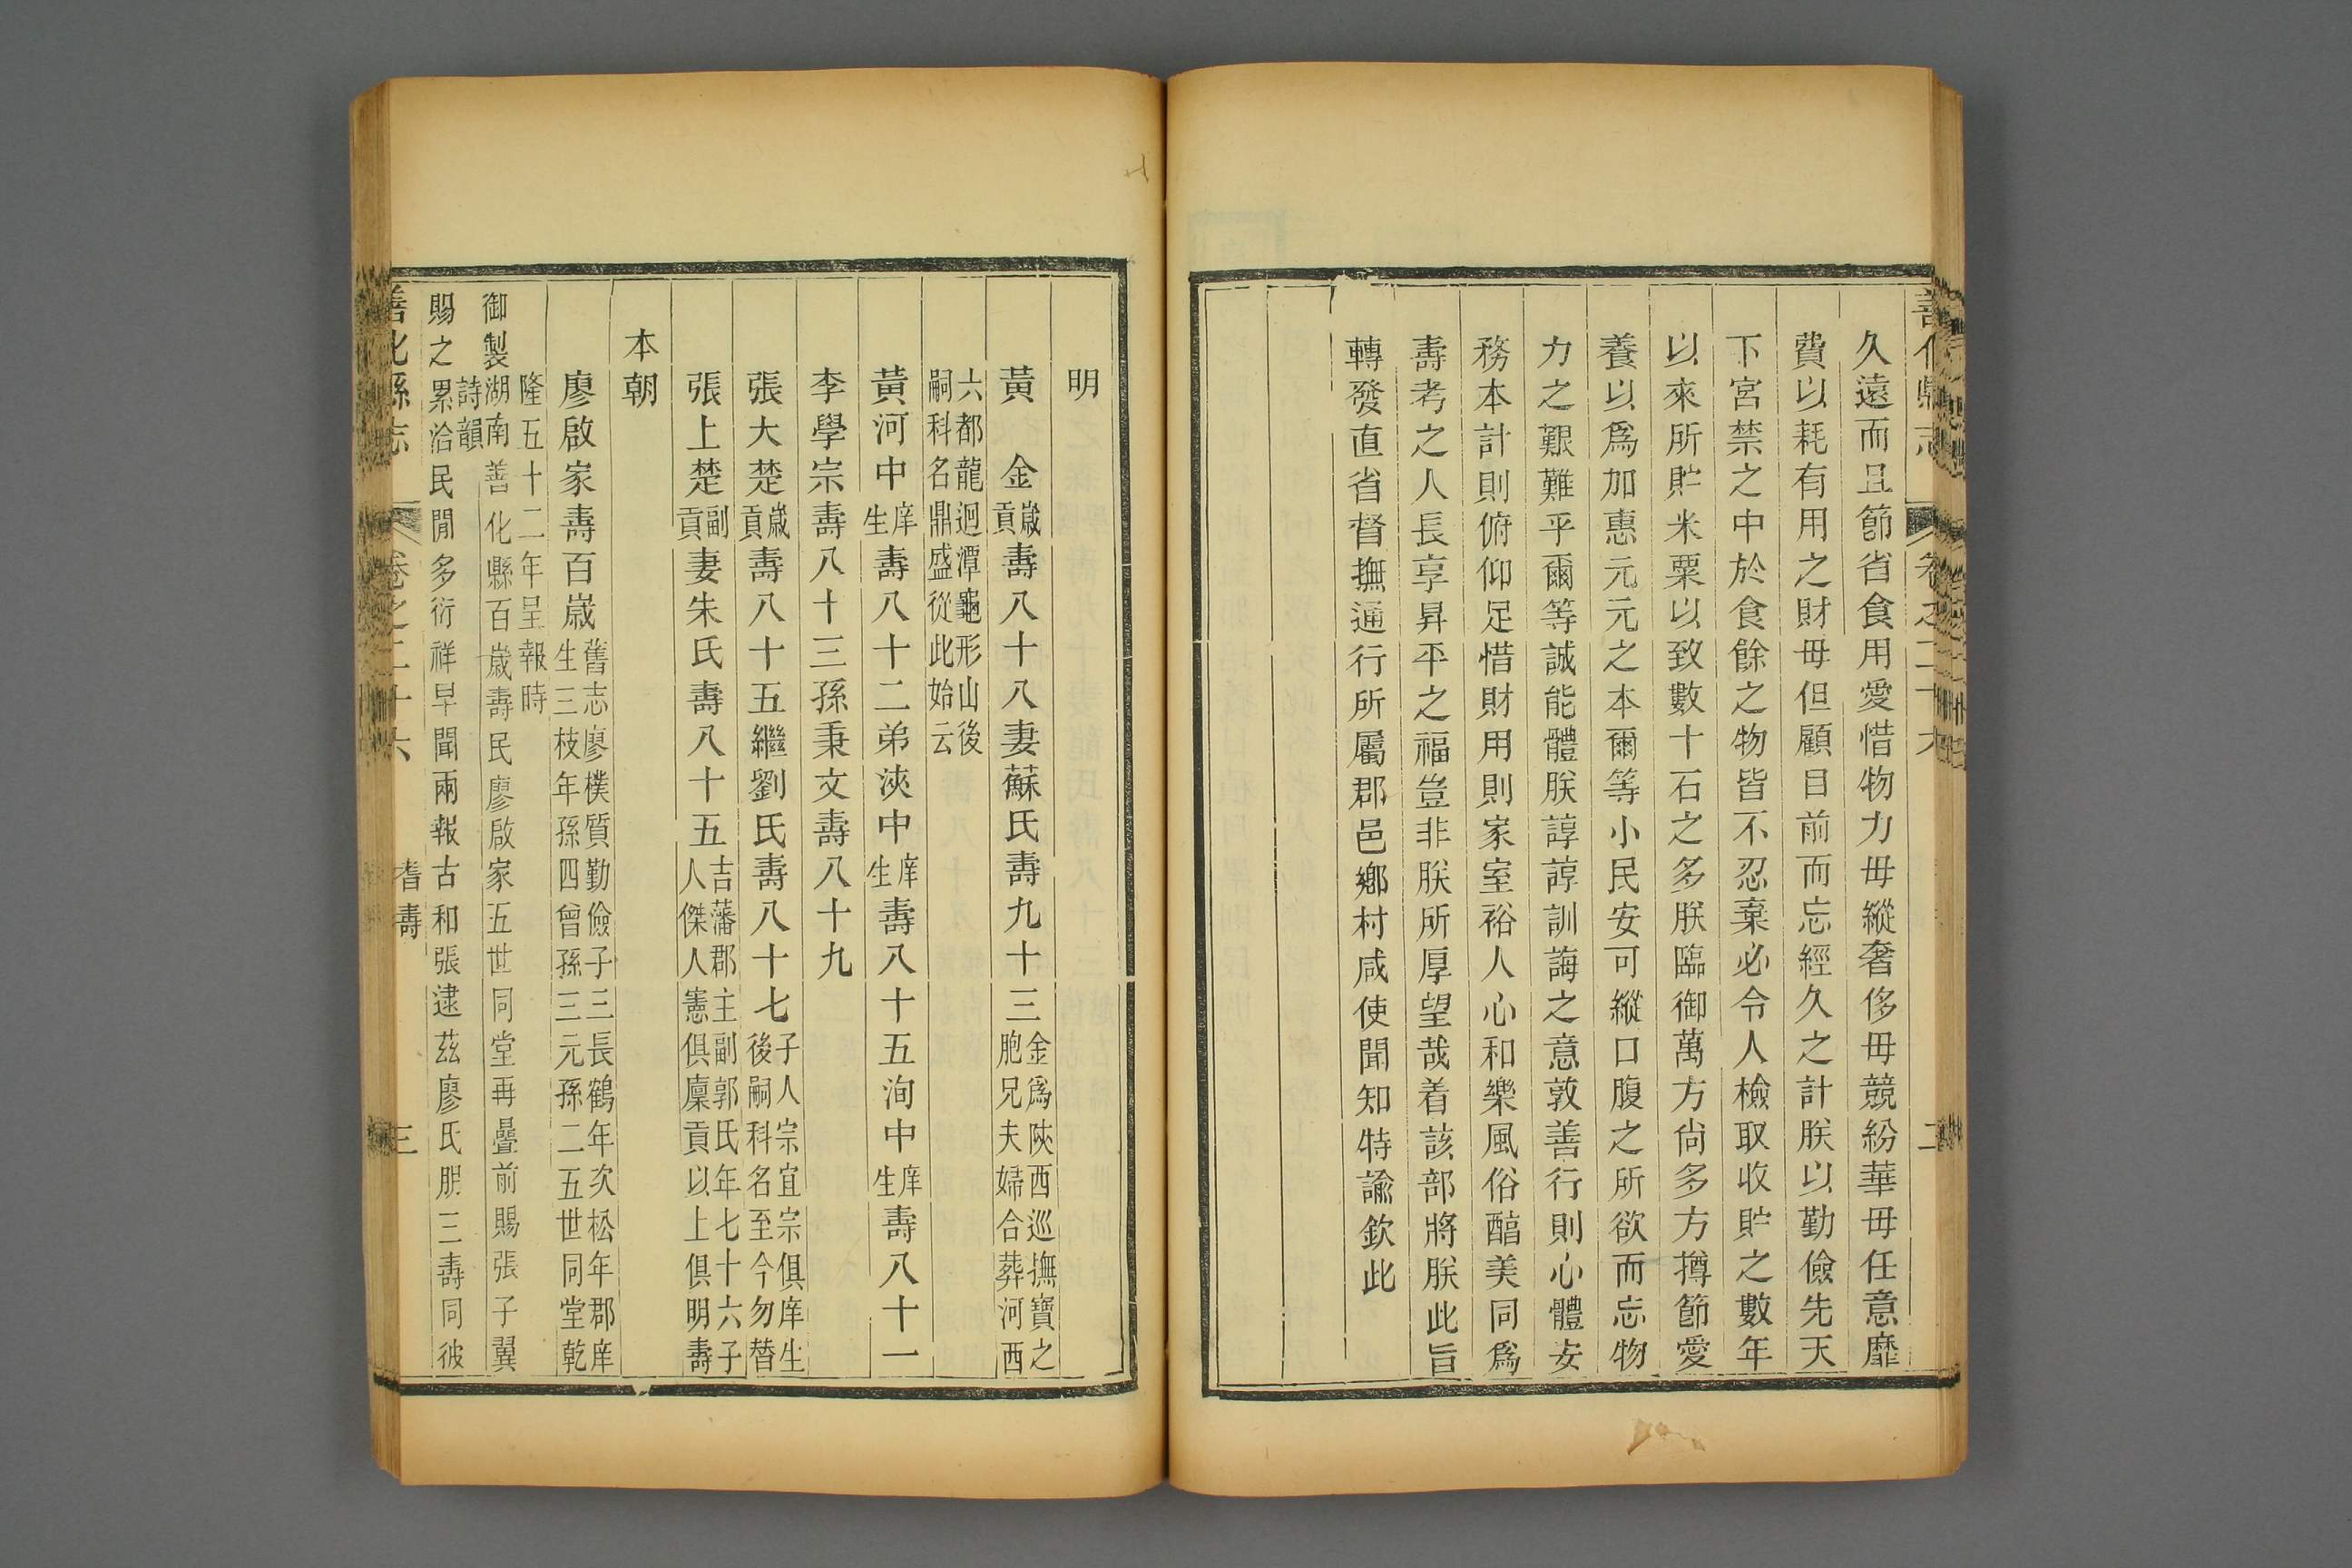 善化縣志 卷之二十六 二
久遠而且節省食用愛惜物力毋縱奢侈毋競紛華毋任意靡
費以耗有用之財毋但顧目前而忘經久之計朕以勤儉先天
下宮禁之中於食餘之物皆不忍棄必令人檢取收貯之數年
以來所貯米粟以致數十石之多朕臨御萬方尙多方撙節愛
養以爲加惠元元之本爾等小民安可縱口腹之所欲而忘物
力之艱難乎爾等誠能體朕諄諄訓誨之意敦善行則心體安
務本計則俯仰足惜財用則家室裕人心和樂風俗醕美同爲
壽考之人長享昇平之福豈非朕所厚望哉着該部將朕此旨
轉發直省督撫通行所屬郡邑鄉村咸使聞知特諭欽此
明
黃 金歲貢壽八十八妻蘇氏壽九十三金爲陝西巡撫寶之胞兄夫婦合葬河西
六都龍迴潭龜形山後嗣科名鼎盛從此始云
黃河中庠生壽八十二弟浹中庠生壽八十五洵中庠生壽八十一
李學宗壽八十三孫秉文壽八十九
張大楚歲貢壽八十五繼劉氏壽八十七子人宗宜宗俱庠生後嗣科名至今勿替
張上楚副貢妻朱氏壽八十五吉藩郡主副郭氏年七十六子人傑人憲俱廩貢以上俱明壽
本朝
廖啟家壽百歲舊志廖樸質勤儉子三長鶴年次松年郡庠生三枝年孫四曾孫三元孫二五世同堂乾
隆五十二年呈報時
御製湖南善化縣百歲壽民廖啟家五世同堂再疊前賜張子翼詩韻
賜之累洽民閒多衍祥早聞兩報古和張逮茲廖氏朋三壽同彼
善化縣志 卷之二十六 耆壽 三